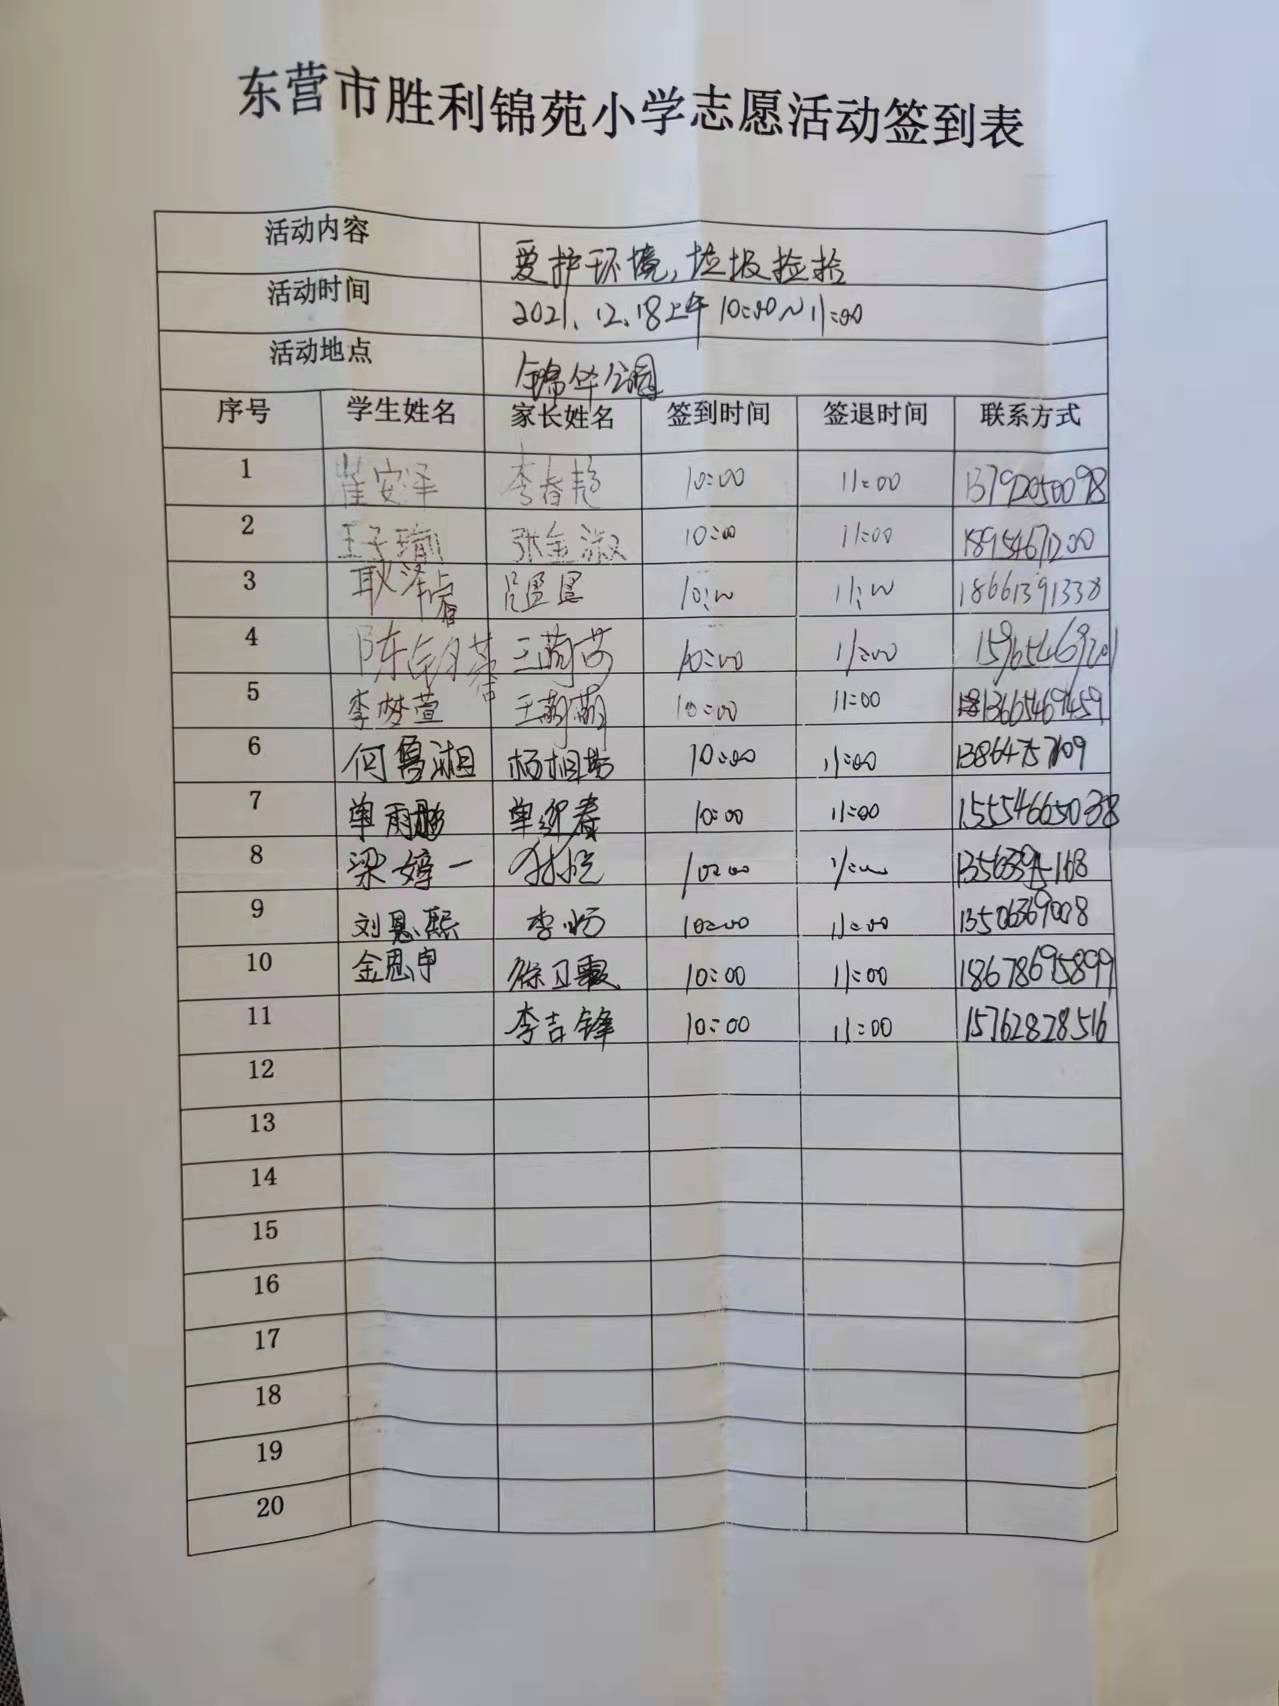 东营市胜利锦苑小学志愿活动签到表
活动内容 爱护环境,垃圾捡捡
活动时间 2021.12.18上午10:00~11:00
活动地点 锦华公园
序号 学生姓名 家长姓名 签到时间 签退时间 联系方式
1 崔安泽 李春艳 10:00 11:00 13792050098
2 王子瑜 张金淑 10:00 11:00 18954671200
3 耿泽睿 10:00 11:00 18661391338
4 10:00 11:00 15965469201
5 李梦萱 王萌萌 10:00 11:00 13665469459
6 何鲁湘 杨相茹 10:00 11:00
7 单雨彤 单迎春 10:00 11:00 15554665038
8 梁婷一 10:00 11:00
9 刘恩熙 10:00 11:00 13506369008
10 金思申 徐卫霞 10:00 11:00 18678695899
11 李吉锋 10:00 11:00 15762828516
12
13
14
15
16
17
18
19
20